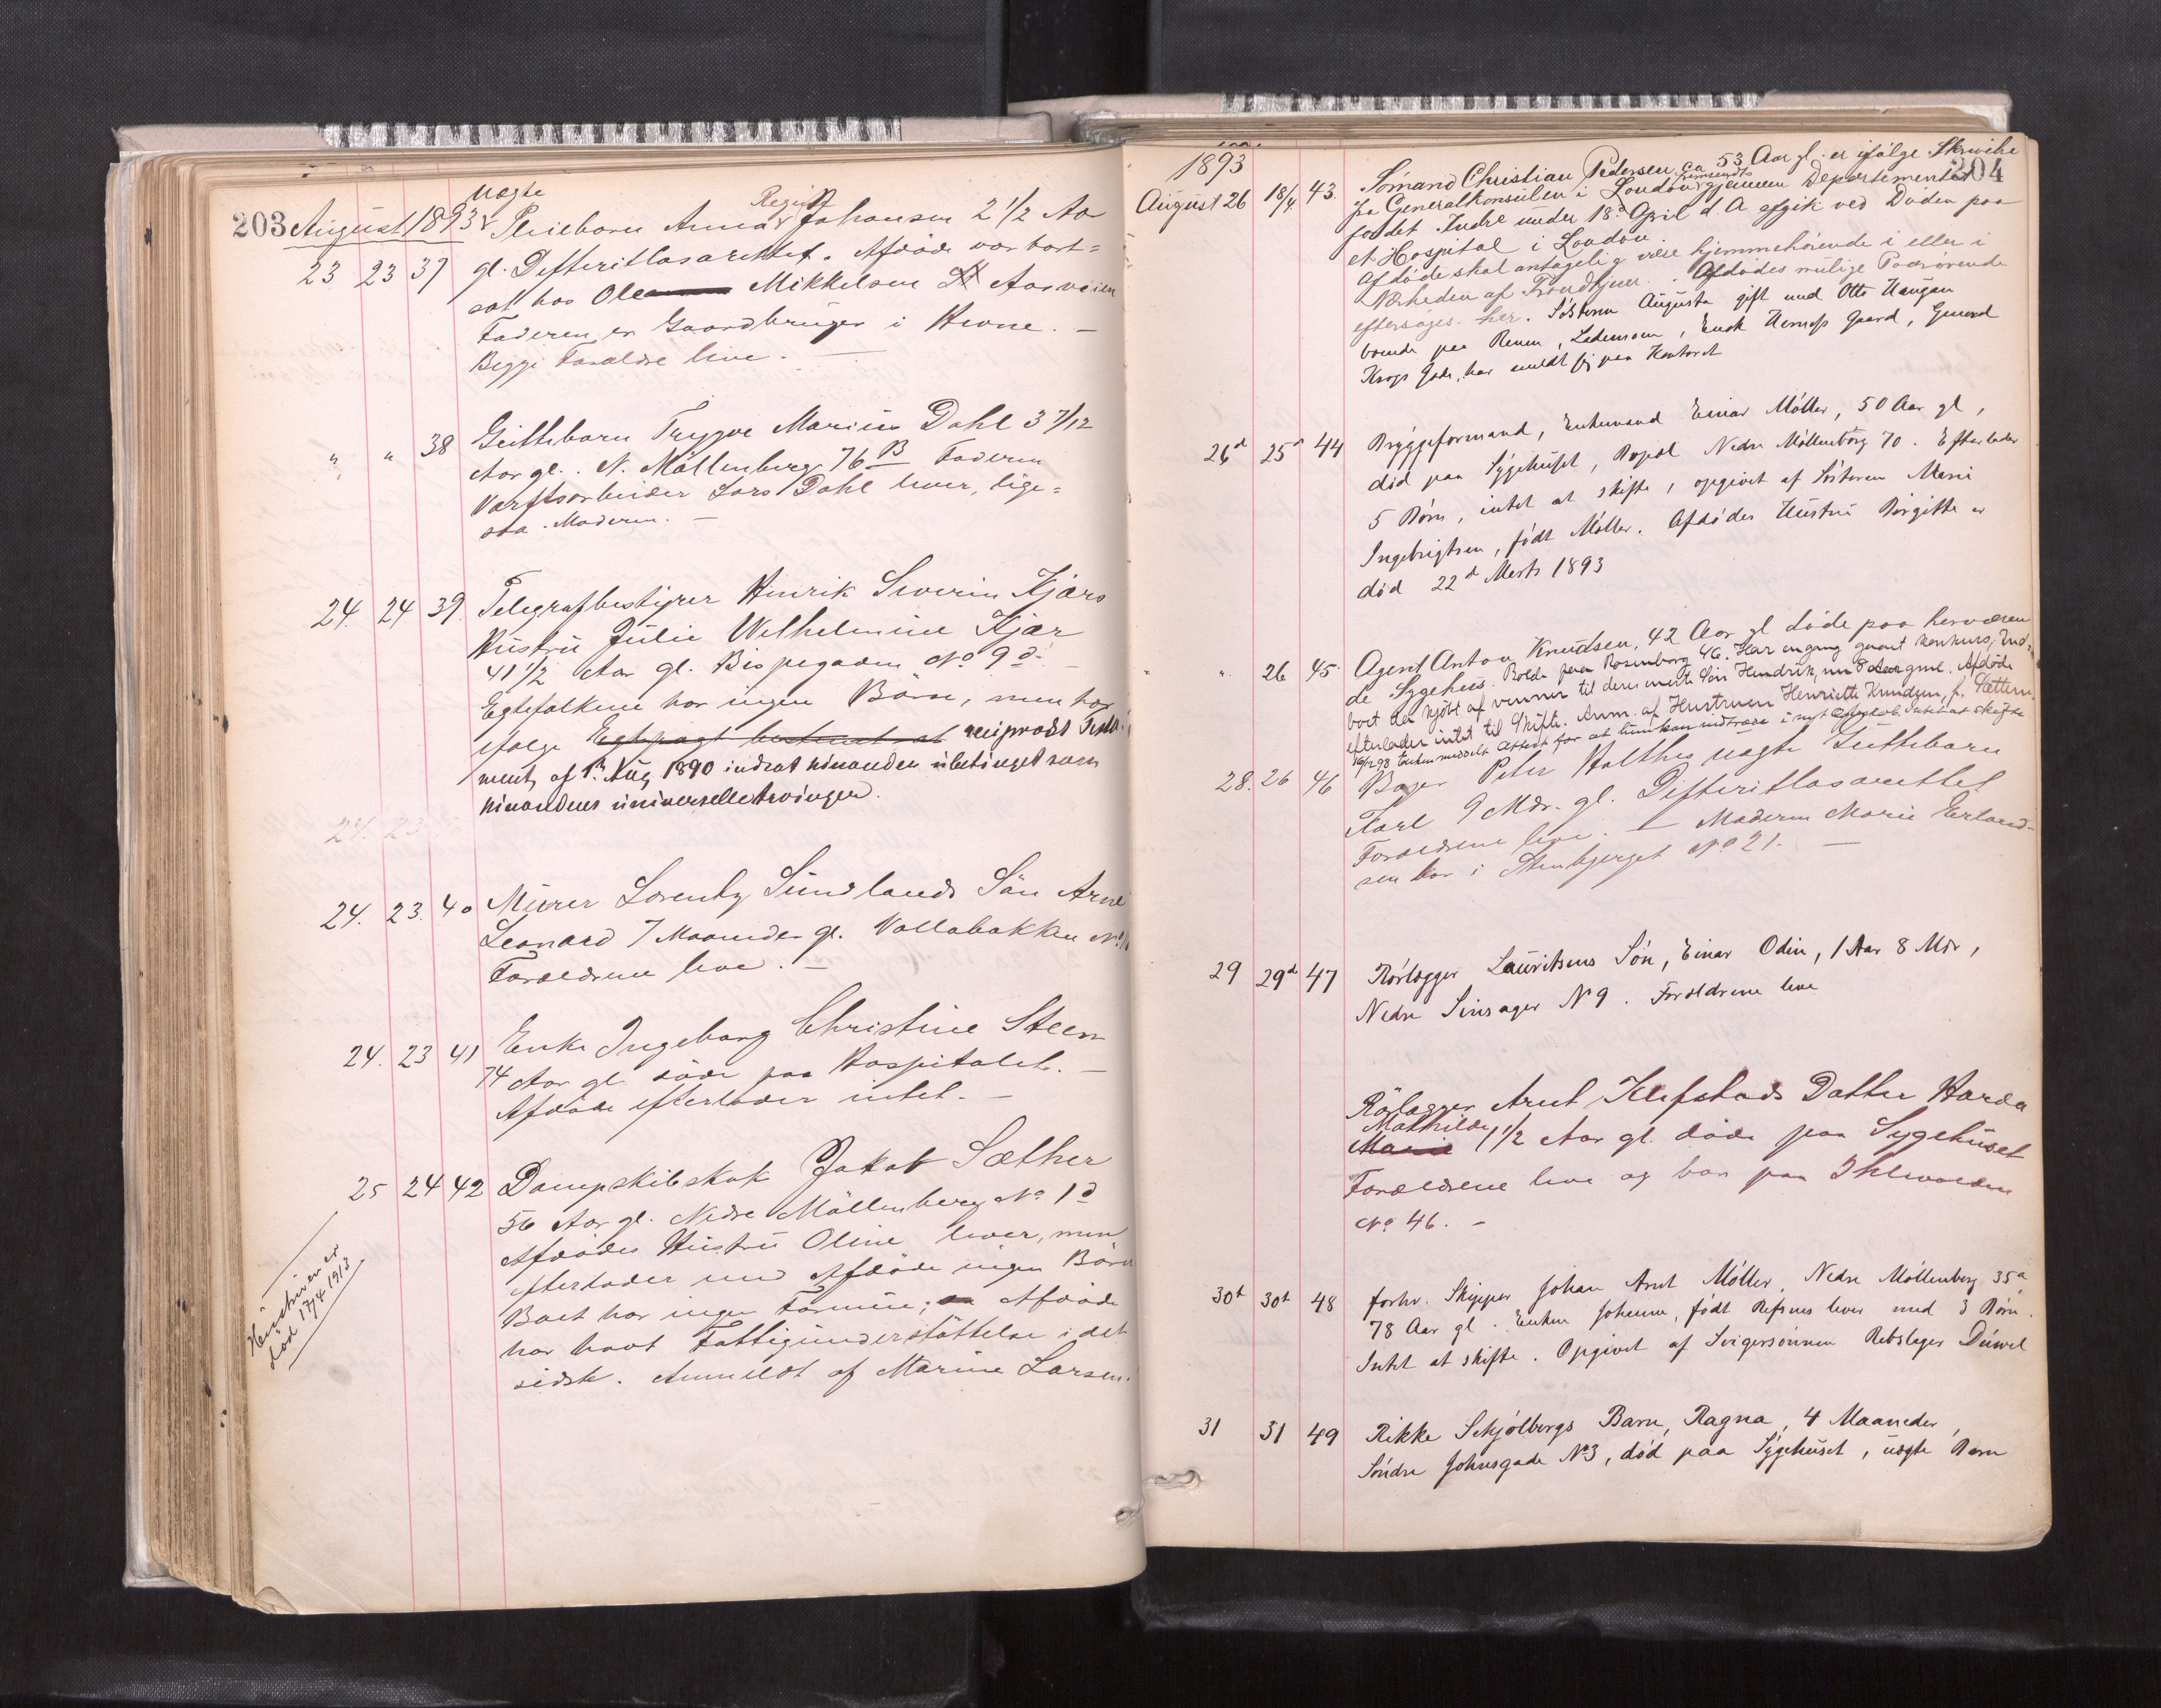 203 August 1893
uægte
Pleiebarn Anna Regine Johansen 2 1/2 Aar
23 23 37 gl. Difteritlasarettet. Afdøde var bort=
sat hos Ole Mikkelsen Aasveien
Faderen er Gaardbruger i Hevne. —
Begge Forældre live. —
" " 38 Guttebarn Trygve Marius Dahl 3 7/12
Aar gl. N. Møllenberg 76 B Faderen
Værftsarbeider Lars Dahl lever, lige=
saa Moderen. —
24. 24 39. Telegrafbestyrer Henrik Severin Kjærs
Hustru Julie Wilhelmine Kjær
41 1/2 Aar gl. Bispegaden No 9 d. —
Egtefolkene har ingen Børn, men har
ifølge Egtepagt bestemt at reciprokt Testa=
ment af 1ste Aug 1890 indsat hinanden ubetinget som
hinandens universelle Arvinger.
24. 23
24. 23. 40 Murer Lorentz Sundlands Søn Arne
Leonard 7 Maaneder gl. Vollabakken No
Forældrene leve. —
24. 23 41 Enke Ingeborg Christine Steen
74 Aar gl. døde paa Hospitalet. —
Afdøde efterlader intet. —
25 24 42 Dampskibskok Jakob Sæther
56 Aar gl. Nedre Møllenberg No 1 d
Afdødes Hustru Oline lever, men
efterlader med Afdøde ingen Børn
Boet har ingen Formue; Afdøde
har havt Fattigunderstøttelse i det
sidste. Anmeldt af Marine Larsen.
Hustruen er
død 17/4 1913
1893
304
August 26 18/4 43. Sømand Christian Pedersen ca 53 Aar gl. er ifølge Skrivelse
fra Generalkonsulen i London fremsendt gjennem Departementet
for det Indre under 18d April d. A afgik ved Døden paa
et Hospital i London
Afdøde skal antagelig være hjemmehørende i eller i
Nærheden af Trondhjem. Afdødes mulige Paarørende
eftersøges her. Søsteren Augusta gift med Otto Haugan
boende paa Renen, Lademoen, Gaard,
Krogs Gade, har meldt sig paa Kontoret
26d 25d 44 Bryggeformand, Enkemand Einar Møller, 50 Aar gl,
død paa Sygehuset, Bopæl Nedre Møllenberg 70. Efterlader
5 Børn, intet at skifte, opgivet af Søsteren Marie
Ingebrigtsen, født Møller. Afdødes Hustru Birgitte er
død 22d Marts 1893
" 26 45. Agent Anton Knudsen, 42 Aar gl døde paa herværen
de Sygehus. Boede paa Rosenborg 46. Har engang gaaet konkurs; Ind=
boet der kjøbt af venner til deres eneste Søn Hendrik, nu 8 Aar gml. Afdøde
efterlader intet til Skifte. Anm. af Hustruen Henriette Knudsen, f. Sættem.
16/12 98 Enken meddelt Attest for at hun kan indtræde i nyt Ægteskab. Intet at skifte
28. 26 46 Bager Peter Holthes uægte Guttebarn
Karl 9 Mdr. gl. Difteritlasarettet
Forældrene leve. — Moderen Marie Erland=
sen bor i Stenbjerget No 21. —
29 29d 47 Rørlægger Lauritsens Søn, Einar Odin, 1 Aar 8 Mdr,
Nedre Sinsager No 9. Forældrene leve
Rørlægger Arnt Klefstads Datter Harda
Mathilde
Marie 1 1/2 Aar gl. døde paa Sygehuset
Forældrene leve og bor paa Ihlevolden
No 46. —
30d 30d 48 forhv. Skipper Johan Arnt Møller, Nedre Møllenberg 35 a
78 Aar gl. Enken Johanne, født Refsnes lever med 3 Børn.
Intet at skifte. Opgivet af Svigersønnen Rebslager Düwel
31 31 49 Rikke Schjølbergs Barn, Ragna, 4 Maaneder,
Søndre Johnsgade No 3, død paa Sygehuset, uægte Barn